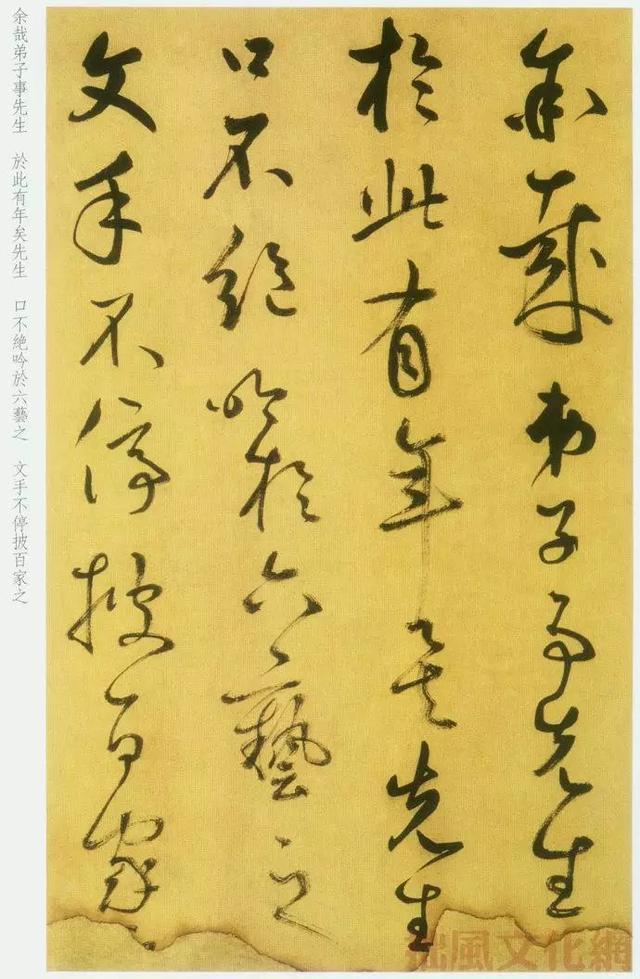 余哉弟子事先生
於此有年矣先生
口不絶吟於六藝之
文手不停披百家之
余哉弟子事先生　於此有年矣先生　口不絶吟於六藝之　文手不停披百家之
風文化網